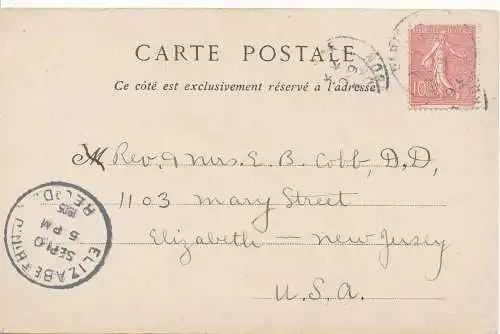 CARTE POSTALE
Ce côté est exclusivement réservé à l'adresse
Rev. & Mrs. E. B. Cobb, D.D,
1103 Mary Street
Elizabeth - New Jersey
U.S.A.
10
ELIZABETH N.J.
SEP 10
5 PM
1905
REC'D.